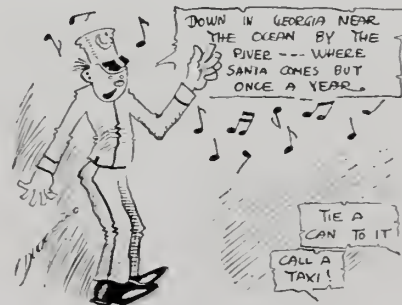 DOWN IN GEORGIA NEAR
THE OCEAN BY THE
RIVER --- WHERE
SANTA COMES BUT
ONCE A YEAR.
TIE A
CAN TO IT
CALL A
TAXI!